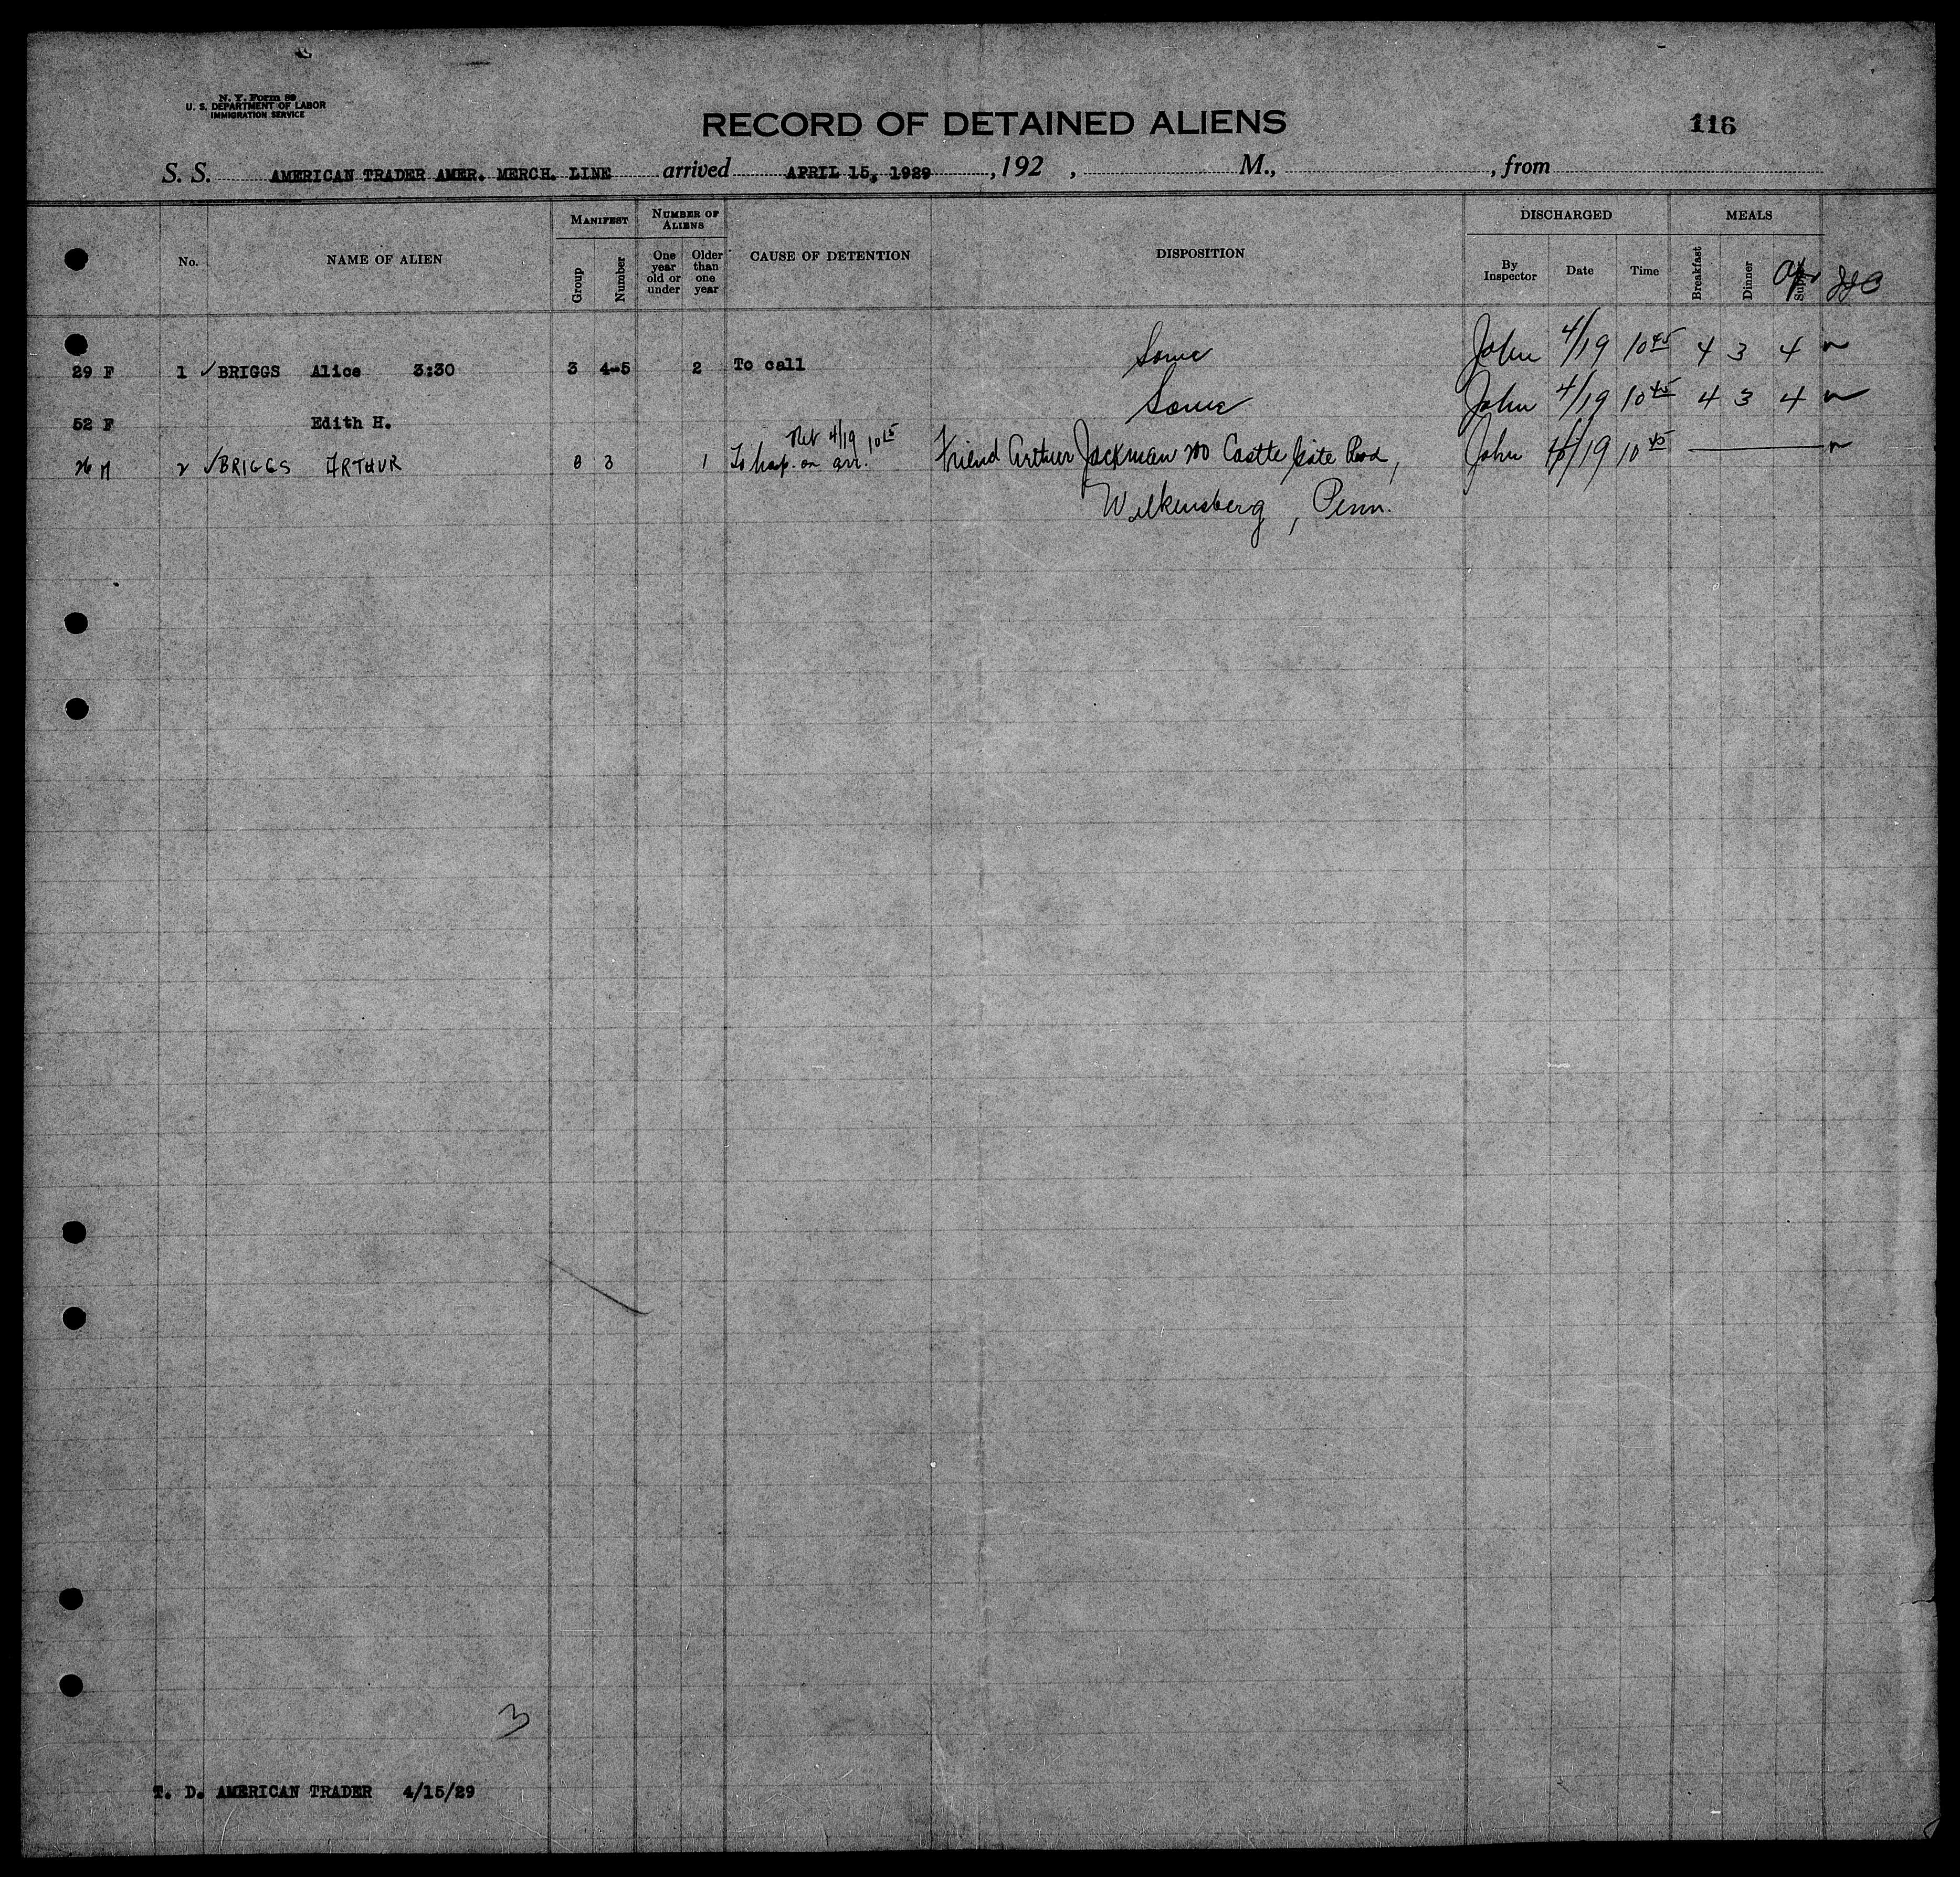 N. Y. Form 89
U. S. DEPARTMENT OF LABOR
IMMIGRATION SERVICE
RECORD OF DETAINED ALIENS
116
S. S. AMERICAN TRADER AMER. MERCH. LINE arrived APRIL 15, 1929, 192 , M., , from
No. NAME OF ALIEN MANIFEST Group Number NUMBER OF ALIENS One year old or under Older than one year CAUSE OF DETENTION DISPOSITION DISCHARGED By Inspector Date Time MEALS Breakfast Dinner
29 F 1 ✓ BRIGGS Alice 3:30 3 4-5 2 To call Same John 4/19 10 45 4 3 4
52 F Edith H. Same John 4/19 10 45 4 3 4
Ret 4/19 10 15
26 M 2 ✓ BRIGGS ARTHUR 8 3 1 To hosp. on arr. Friend Arthur Jackman Castle Gate Road, John 4/19 10 45
Wilkensberg, Penn.
3
T. D. AMERICAN TRADER 4/15/29